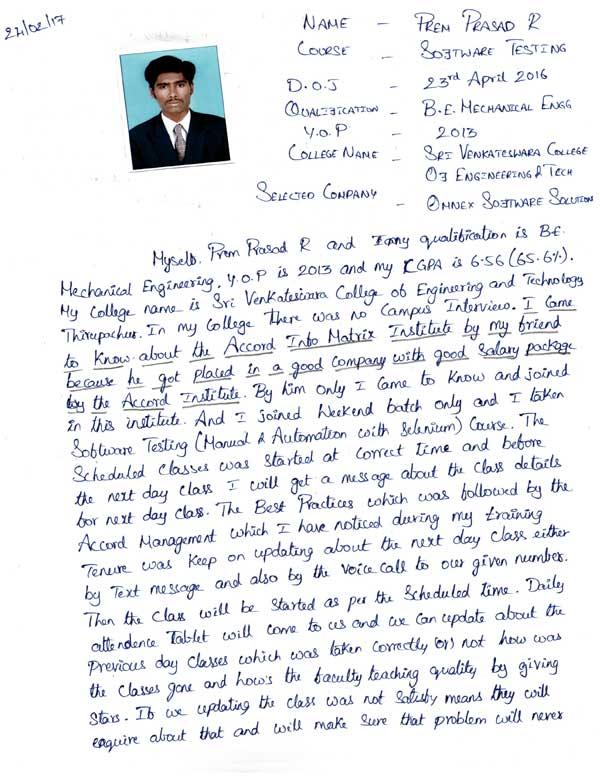 24/02/17
NAME - PREM PRASAD R
COURSE - SOFTWARE TESTING
D.O.J - 23rd April 2016
QUALIFICATION - B.E. MECHANICAL ENGG
Y.O.P - 2013
COLLEGE NAME - SRI VENKATESWARA COLLEGE
OF ENGINEERING & TECH
SELECTED COMPANY - OMNEX SOFTWARE SOLUTION
Myself. Prem Prasad R and my qualification is B.E.
Mechanical Engineering. Y.O.P is 2013 and my CGPA is 6.56 (65.6%).
My College name is Sri Venkateswara College of Engineering and Technology
Thirupachur. In my college there was no Campus Interview. I Came
to know about the Accord Info Matrix Institute by my friend
because he got placed in a good company with good salary package
by the Accord Institute. By him only I came to know and joined
in this institute. And I joined Weekend batch only and I taken
Software Testing (Manual & Automation with Selenium) Course. The
Scheduled classes was started at correct time and before
the next day class I will get a message about the class details
for next day class. The Best Practices which was followed by the
Accord Management which I have noticed during my training
Tenure was keep on updating about the next day class either
by Text message and also by the voice call to our given number.
Then the class will be started as per the Scheduled time. Daily
attendence Tablet will come to us and we can update about the
Previous day classes which was taken correctly (or) not how was
the classes gone and how's the faculty teaching quality by giving
Stars. If we updating the class was not Satisfy means they will
enquire about that and will make sure that problem will never